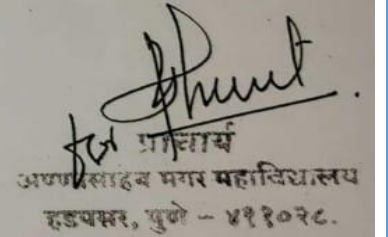 for
प्राचार्य
अण्णासाहेब मगर महाविद्यालय
हडपसर, पुणे - ४११०२८.